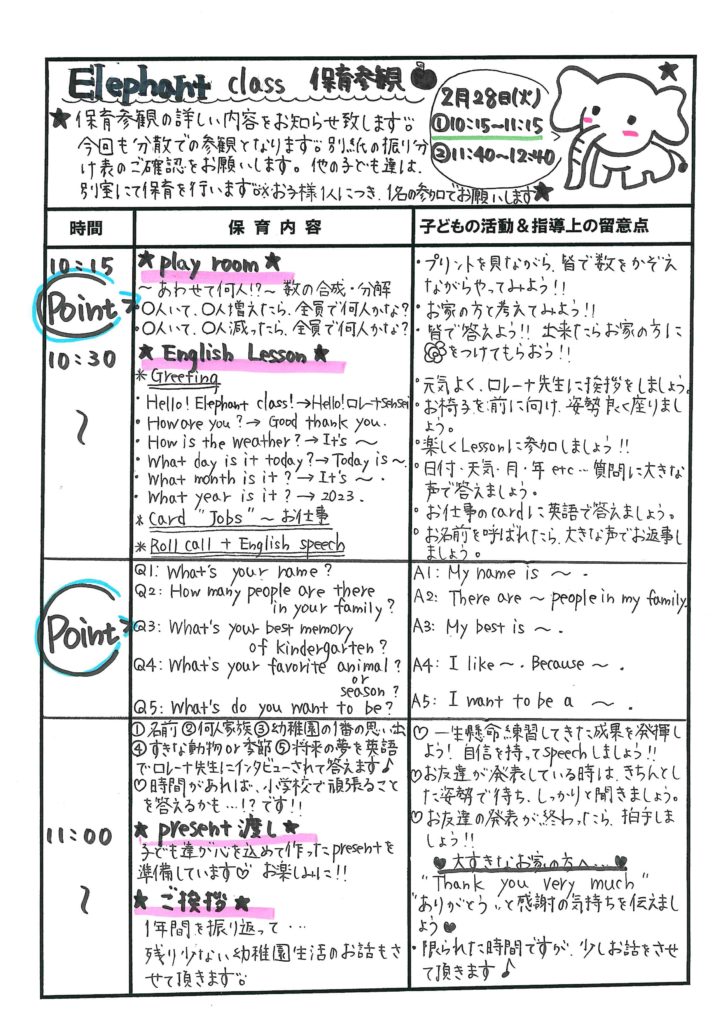 Elephant class 保育参観
2月28日(火)
①10:15~11:15
②11:40~12:40
★保育参観の詳しい内容をお知らせ致します。
今回も分散での参観となります。別紙の振り分
け表のご確認をお願いします。他の子ども達は、
別室にて保育を行います。※お子様1人につき、1名の参加でお願いします★
時間
保育内容
子どもの活動&指導上の留意点
10:15
Point
★play room★
~あわせて何人!?~ 数の合成・分解
・〇人いて、〇人増えたら、全員で何人かな?
・〇人いて、〇人減ったら、全員で何人かな?
・プリントを見ながら、皆で数をかぞえ
ながらやってみよう!!
・お家の方で考えてみよう!!
・皆で答えよう!! 出来たらお家の方に
をつけてもらおう!!
10:30
~
★English Lesson★
*Greeting
・Hello! Elephant class!→Hello!ロレーナsensei
・How are you?→ Good thank you.
・How is the weather?→It's ~
・What day is it today?→Today is~.
・What month is it?→It's ~.
・What year is it?→2023.
*Card "Jobs"~お仕事
*Roll call + English speech
・元気よく、ロレーナ先生に挨拶をしましょう。
・お椅子を前に向け、姿勢良く座りまし
ょう。
・楽しくLessonに参加しましょう!!
・日付・天気・月・年 etc…質問に大きな
声で答えましょう。
・お仕事のcardに英語で答えましょう。
・お名前を呼ばれたら、大きな声でお返事し
ましょう。
Point
Q1: What's your name?
Q2: How many people are there
in your family?
Q3: What's your best memory
of kindergarten?
Q4: What's your favorite animal?
or
season?
Q5: What's do you want to be?
A1: My name is ~.
A2: There are ~ people in my family.
A3: My best is ~.
A4: I like ~. Because ~.
A5: I want to be a ~.
①名前②何人家族③幼稚園の1番の思い出
④すきな動物or季節⑤将来の夢を英語
でロレーナ先生にインタビューされて答えます♪
♡時間があれば、小学校で頑張ること
を答えるかも…!?です!!
♡一生懸命練習してきた成果を発揮し
よう!自信を持ってspeechしましょう!!
♡お友達が発表している時は、きちんとし
た姿勢で待ち、しっかりと聞きましょう。
♡お友達の発表が終わったら、拍手しま
しょう!!
11:00
~
★present渡し★
子ども達が心を込めて作ったpresentを
準備しています♡ お楽しみに!!
★ご挨拶★
1年間を振り返って…
残り少ない幼稚園生活のお話もさ
せて頂きます。
♥大すきなお家の方へ…♥
"Thank you very much"
"ありがとう"と感謝の気持ちを伝えまし
ょう♥
・限られた時間ですが、少しお話をさせ
て頂きます♪